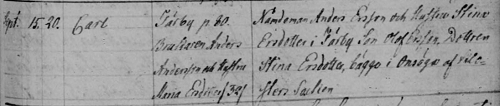 Sept. 15. 20. Carl
Färby p. 60.
Brukaren Anders
Andersson och hustru
Maria Ersdotter / 39 /
Nämdeman Anders Ersson och Hustru Stina
Ersdotter i Färby Son Olof Ersson, Dottren
Stina Ersdotter, bägge i
Socken